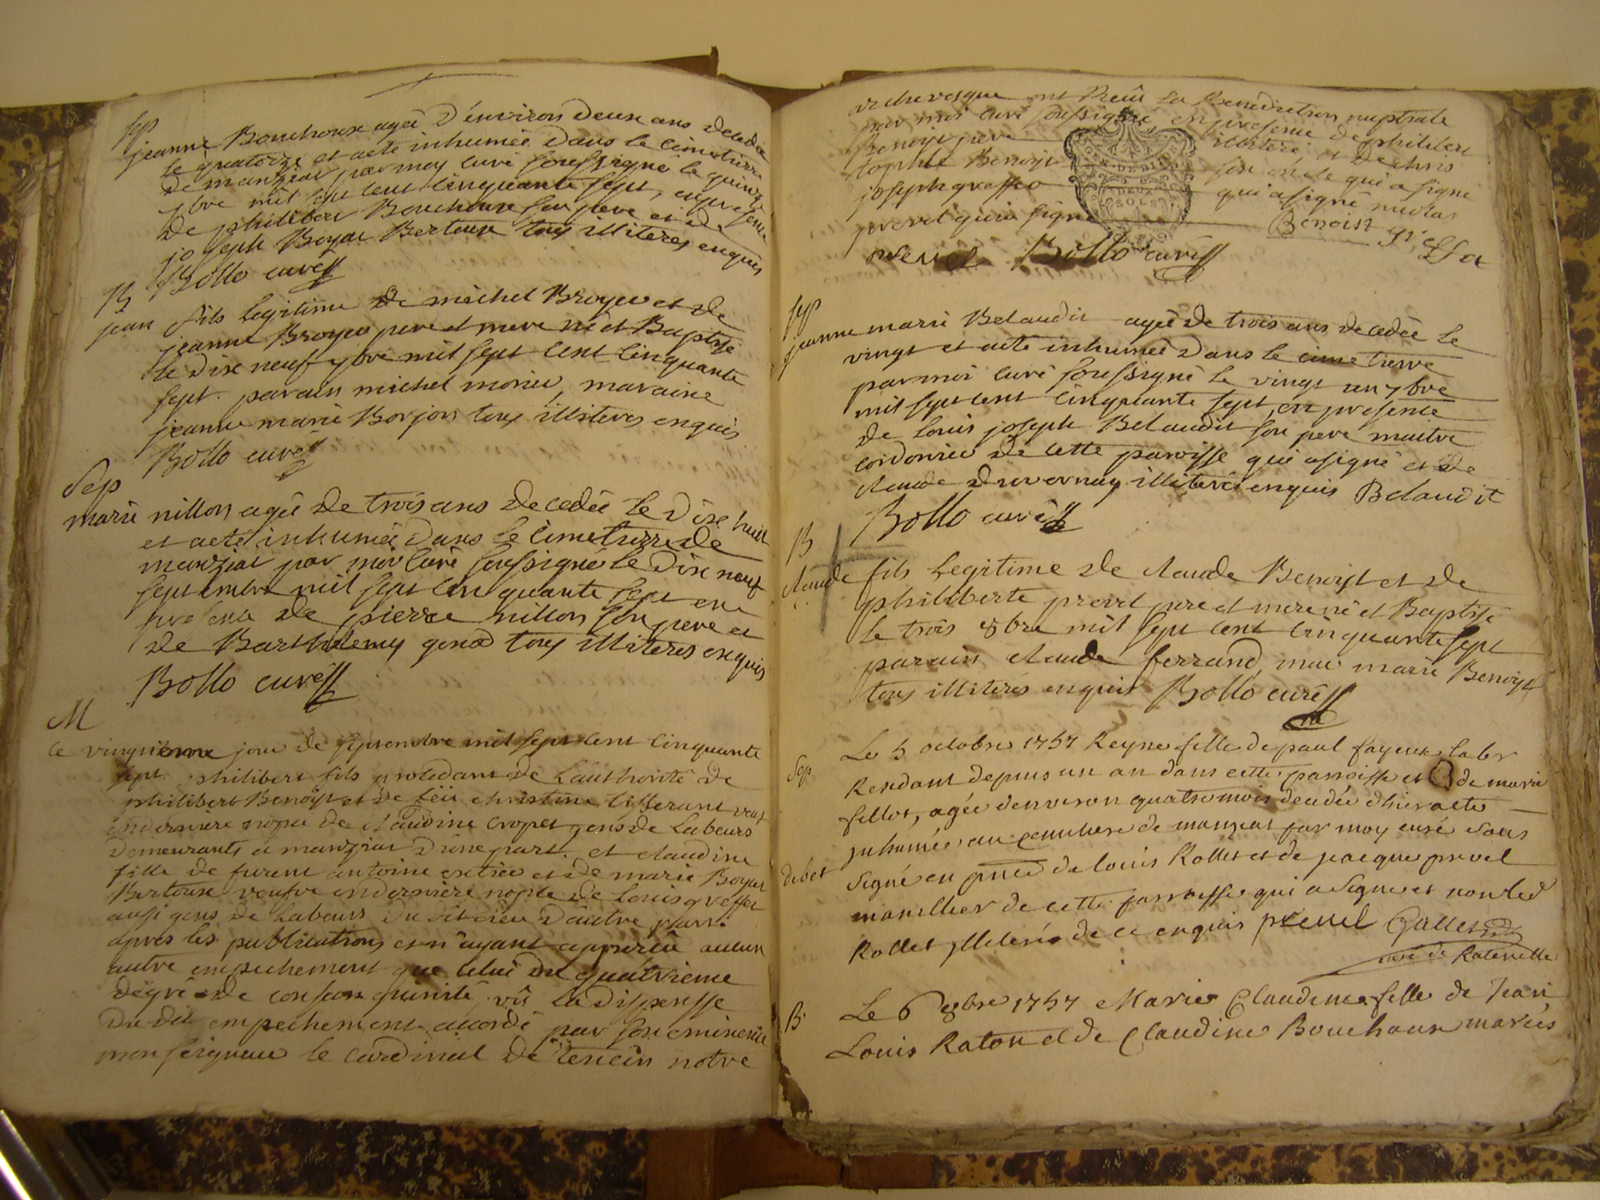 Sep
jeanne Bouchoux agée D'environ Deux ans decedée
le quatorze et acté inhumée Dans le cimetierre
De manziat par moy curé soussigné le quinze
7bre mil sept cent cinquante sept, en presence
De philibert Bouchoux son pere et de
joseph Boyat Bertoux tous illiteres enquis
Bollo curé
B
jean fils legitime De michel Broyer et de
jeanne Broyer pere et mere né et Baptisé
le Dix neuf 7bre mil sept cent cinquante
sept. parain michel monier, maraine
jeanne marie Borjon tous illiteres enquis
Bollo curé
Sep
marie nillon agée De trois ans Decedée Le Dix huit
et acté inhumée Dans le cimetierre De
manziat par moi curé soussigné le Dix neuf
septembre mil sept cen quante sept en
presence De pierre nillon son pere et
de Barthelemy genod tous illiteres enquis
Bollo curé
M
Ce vingtieme jour de septembre mil sept cent cinquante
sept philibert fils procedant de L'authorité de
philibert Benoist et De feüe christine veuf
en derniere nopce de Claudine cropet gens de Labeurs
Demeurants a manziat D'une part. et claudine
fille de furent antoine et de marie Boyat
Bertoux veufve en derniere nopce de Louis greffet
aussi gens de Labeurs Du dit Lieu D'autre part.
apres les publications et n'ayant apparû aucun
autre empechement que celui Du quatrieme
degré de consanguinité vû La Dispensse
Du dit empechement accordé par son eminence
monseigneur le cardinal De Tencin notre
archevesque ont Recûs La Benediction nuptiale
par moi curé soussigné en presence de philibert
Benoist pere illiteré et De chris
tophle Benoist son oncle qui a signé
joseph greffet qui a signé nicolas
prevel qui a signé Benoist greffet
prevel Bollo curé
Sep
jeanne marie Belaudit agée De trois ans decedée le
vingt et acté inhumée Dans le cimetierre
par moi curé soussigné le vingt un 7bre
mil sept cent cinquante sept en presence
De Louis joseph Belaudit son pere maitre
cordonnier de cette paroisse qui a signé et de
claude Duvernay illiteré enquis Belaudit
Bollo curé
B
claude fils Legitime de claude Benoist et de
philiberte prevel pere et mere né et Baptisé
Le trois 8bre mil sept cent cinquante sept
parain claude ferrand, mar marie Benoist
tous illiterés enquis Bollo curé
Sep Le 5 octobre 1757 Reyne fille de paul fayeux labo
Residant depuis un an dans cette parroisse et de marie
fillot, agée denviron quatre mois decedée d'hier a esté
inhumée au cemitiere de manziat par moy curé sous
debet signé en pnce de louis Rollet et de jacque prevel
manillier de cette parroisse qui a signé et non led
Rollet illiteré de ce enquis prevel Gallet
curé de Ratenelle
B. Le 6 8bre 1757 Marie Claudine fille de Jean
Louis Raton et de Claudine Bouchoux mariés